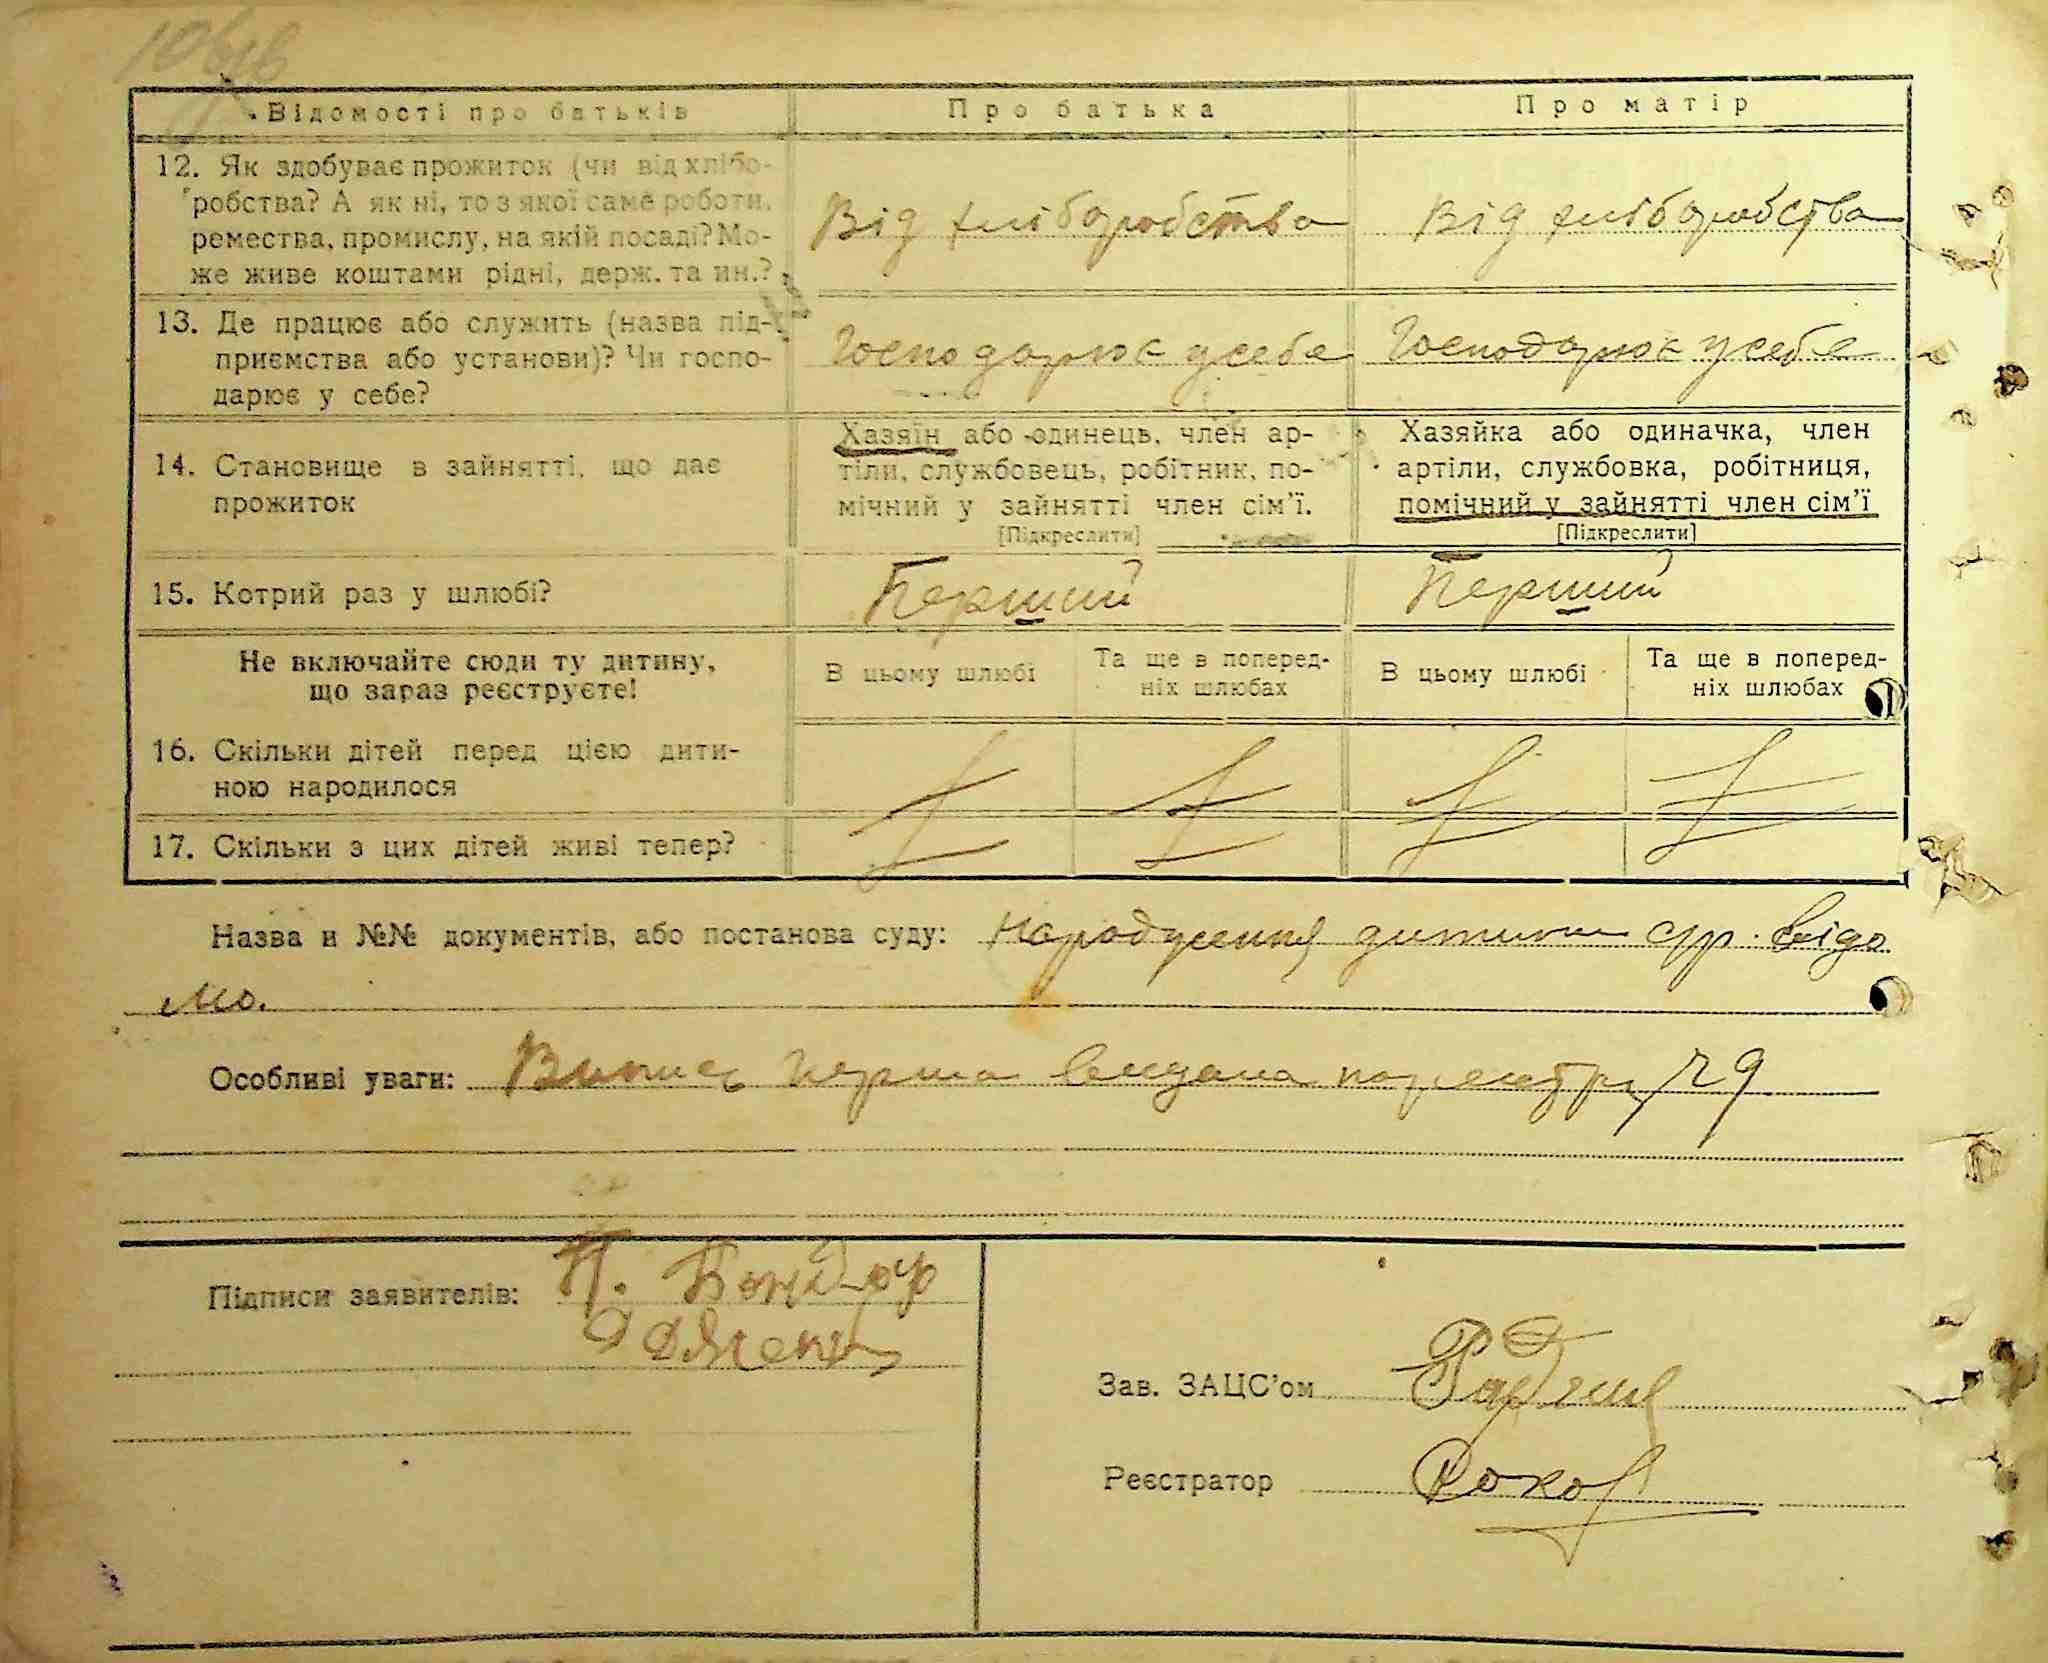 Відомості про батьків
Про батька
Про матір
12. Як здобуває прожиток (чи від хлібо-
робства? А як ні, то з якої саме роботи,
ремества, промислу, на якій посаді? Мо-
же живе коштами рідні, держ. та ин.?
Від хліборобства
Від хліборобства
13. Де працює або служить (назва під-
приємства або установи)? Чи госпо-
дарює у себе?
Господарює у себе
Господарює у себе
14. Становище в зайнятті, що дає
прожиток
Хазяїн або одинець, член ар-
тіли, службовець, робітник, по-
мічний у зайнятті член сім'ї.
[Підкреслити]
Хазяйка або одиначка, член
артіли, службовка, робітниця,
помічний у зайнятті член сім'ї
[Підкреслити]
15. Котрий раз у шлюбі?
Перший
Перший
Не включайте сюди ту дитину,
що зараз реєструєте!
В цьому шлюбі
Та ще в поперед-
ніх шлюбах
В цьому шлюбі
Та ще в поперед-
ніх шлюбах
16. Скільки дітей перед цією дити-
ною народилося
17. Скільки з цих дітей живі тепер?
Назва и №№ документів, або постанова суду: народження дитини с/р. відо
мо.
Особливі уваги: Витис перша видана по реєстру 29
Підписи заявителів: П.
Зав. ЗАЦС'ом
Реєстратор